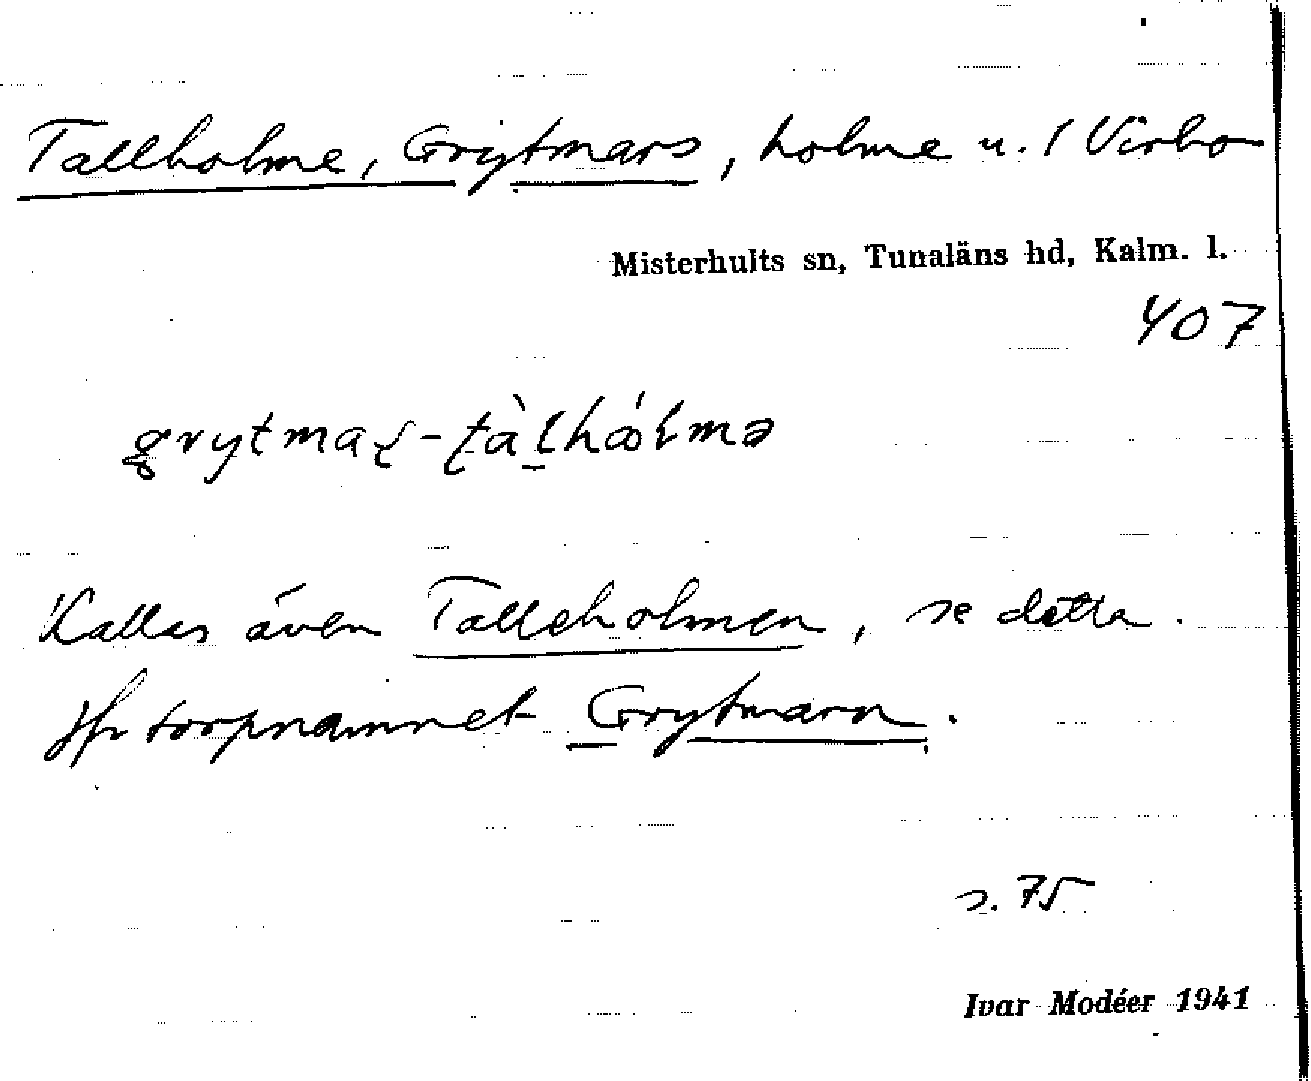 Tallholme, Grytmars, holme u. 1 Virbo
Misterhults sn, Tunaläns hd, Kalm. l.
407
Kallas även Talleholmen, se detta.
Jfr torpnamnet Grytmarn.
s. 75
Ivar Modéer 1941